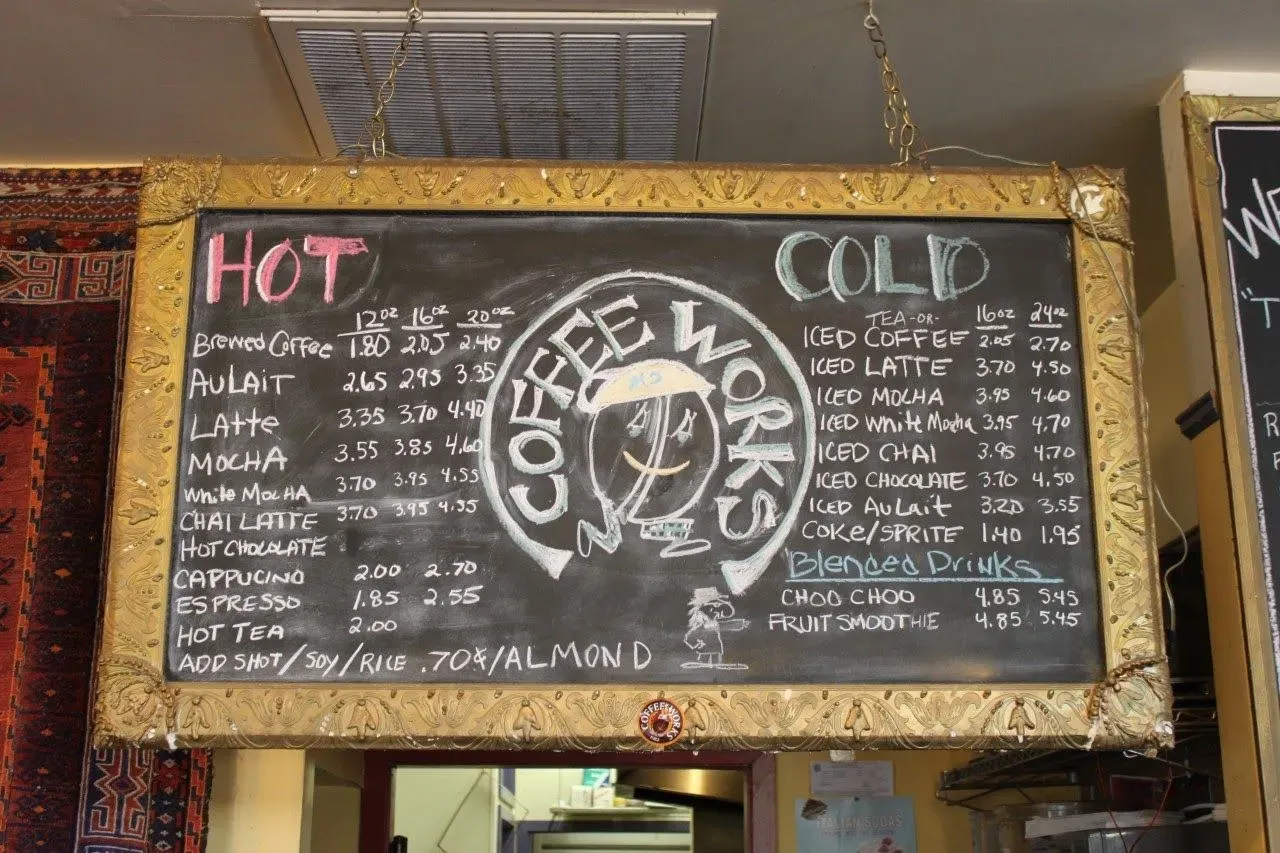 HOT
12oz 16oz 20oz
Brewed Coffee 1.80 2.05 2.40
AU LAIT 2.65 2.95 3.35
LAtte 3.35 3.70 4.40
MOCHA 3.55 3.85 4.60
White MocHA 3.70 3.95 4.55
CHAI LATTE 3.70 3.95 4.55
HOT CHOCOLATE
CAPPUCINO 2.00 2.70
ESPRESSO 1.85 2.55
HOT TEA 2.00
ADD SHOT/SOY/RICE .70¢/ALMOND
COFFEE WORKS
KS
COLD
TEA -OR- 16oz 24oz
ICED COFFEE 2.05 2.70
ICED LATTE 3.70 4.50
ICED MOCHA 3.95 4.60
ICED White Mocha 3.95 4.70
ICED CHAI 3.95 4.70
ICED CHOCOLATE 3.70 4.50
ICED AuLait 3.20 3.55
COKe/SPRITE 1.40 1.95
Blended Drinks
CHOO CHOO 4.85 5.45
FRUIT SMOOTHIE 4.85 5.45
COFFEE WORKS
ITALIAN SODAS